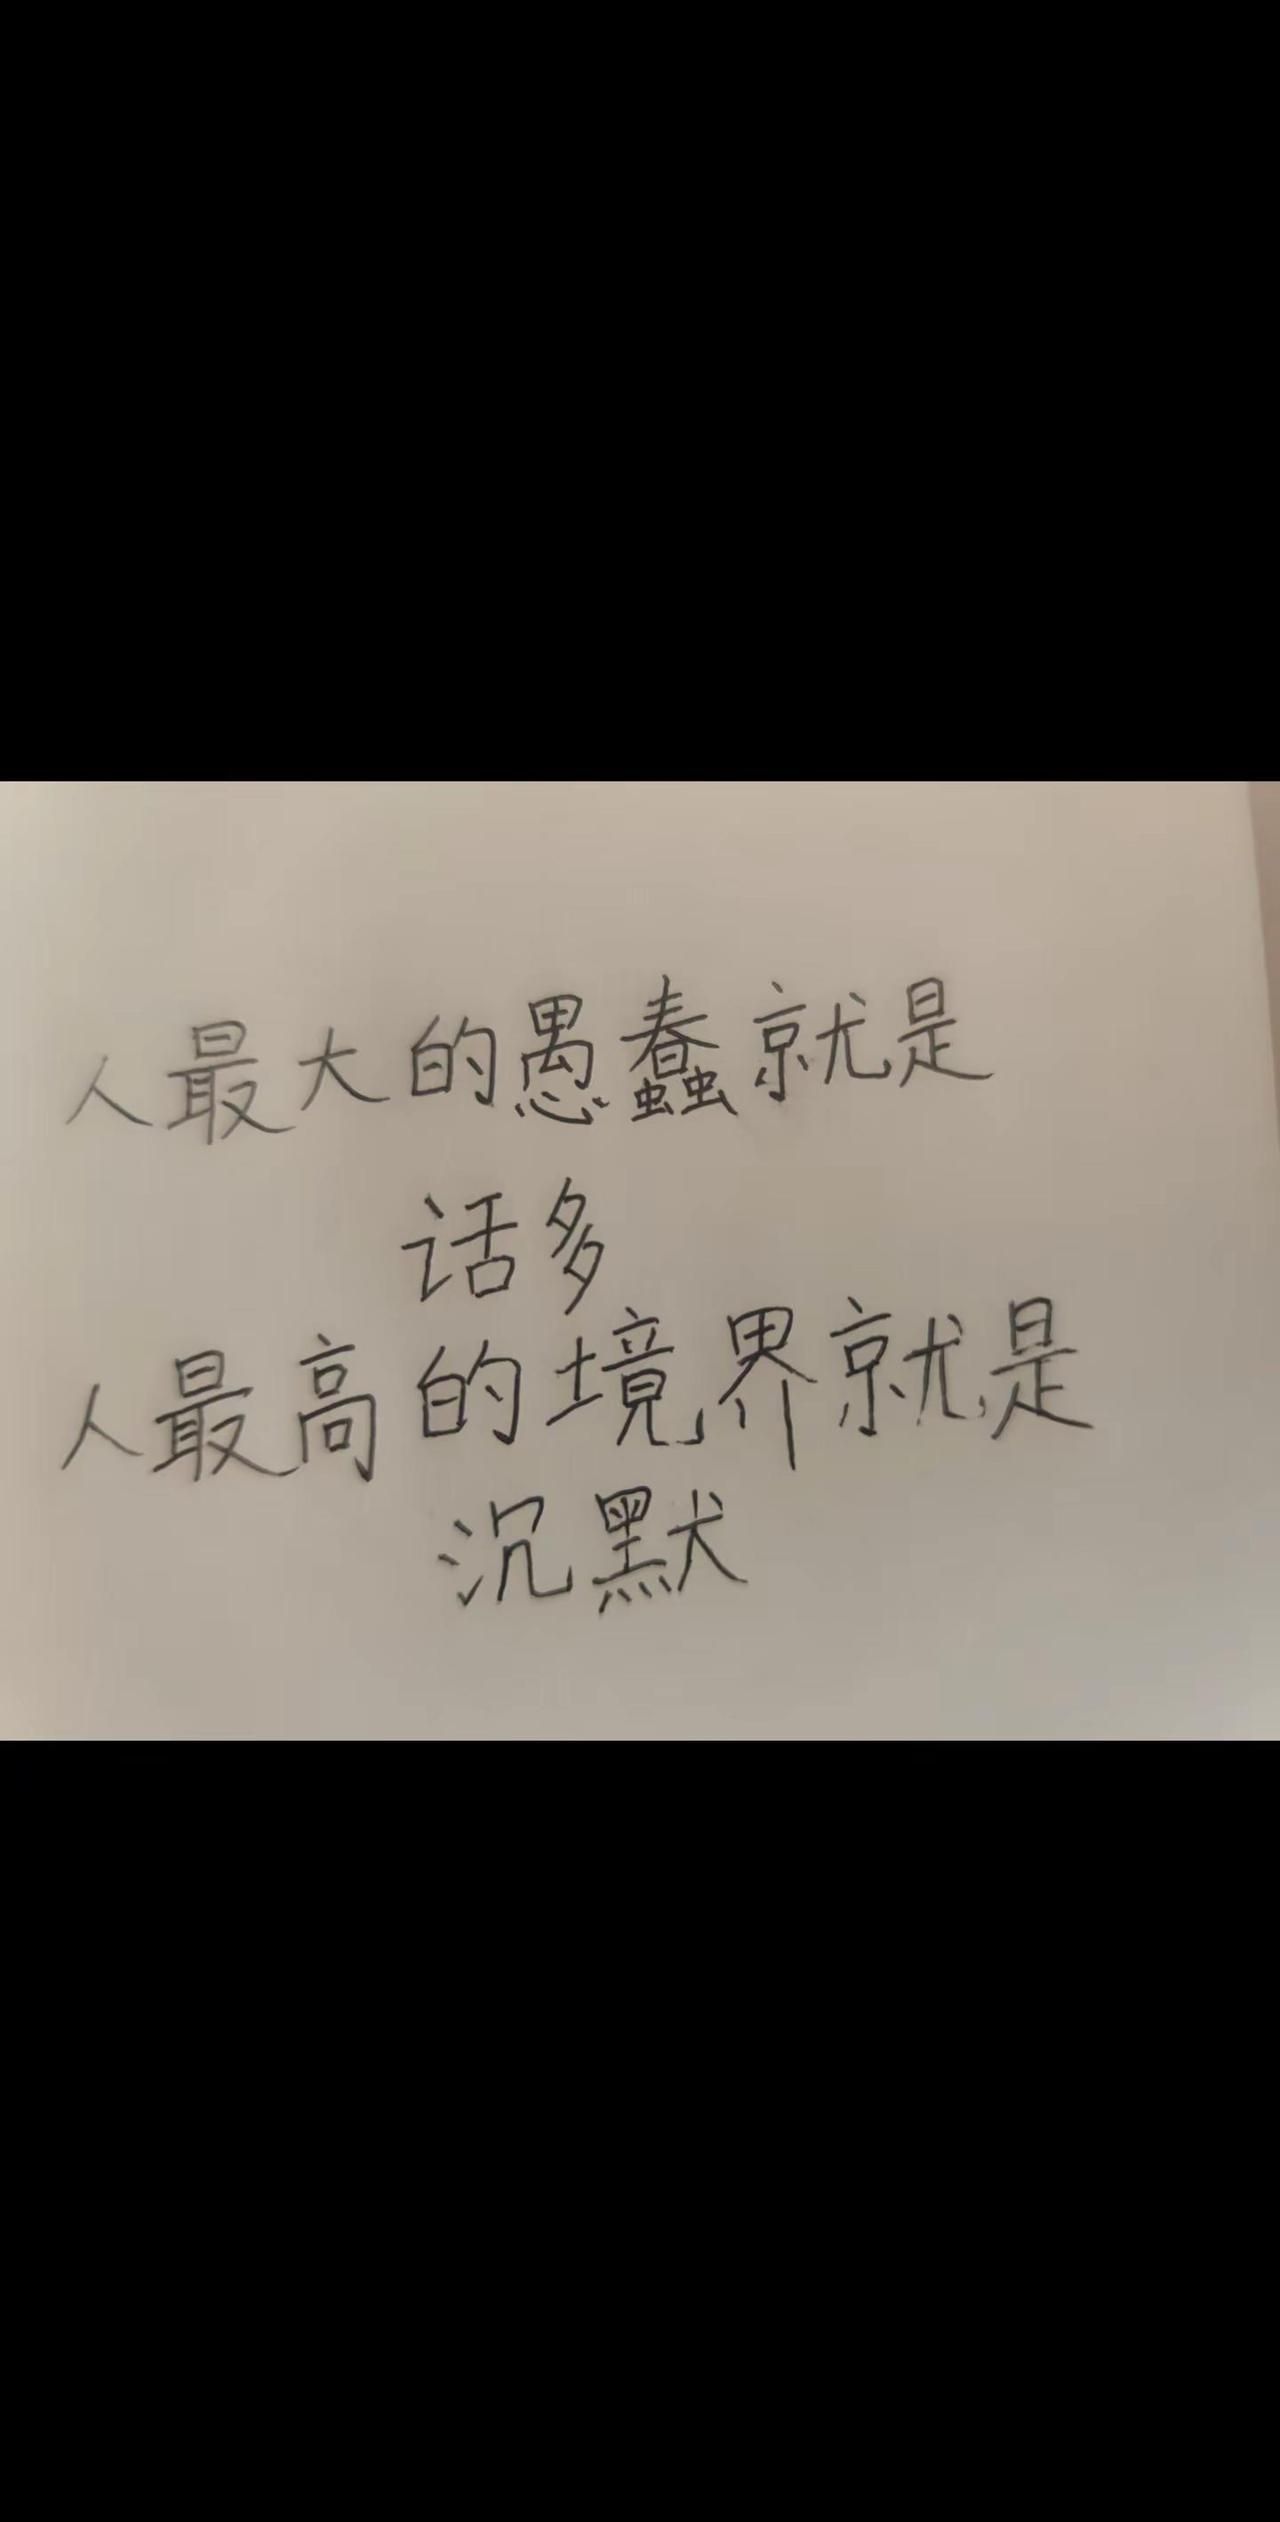 人最大的愚蠢就是
话多
人最高的境界就是
沉默